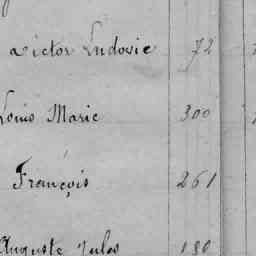 Victor Ludovic 72
Louis Marie 300
François 261
Auguste Jules 130